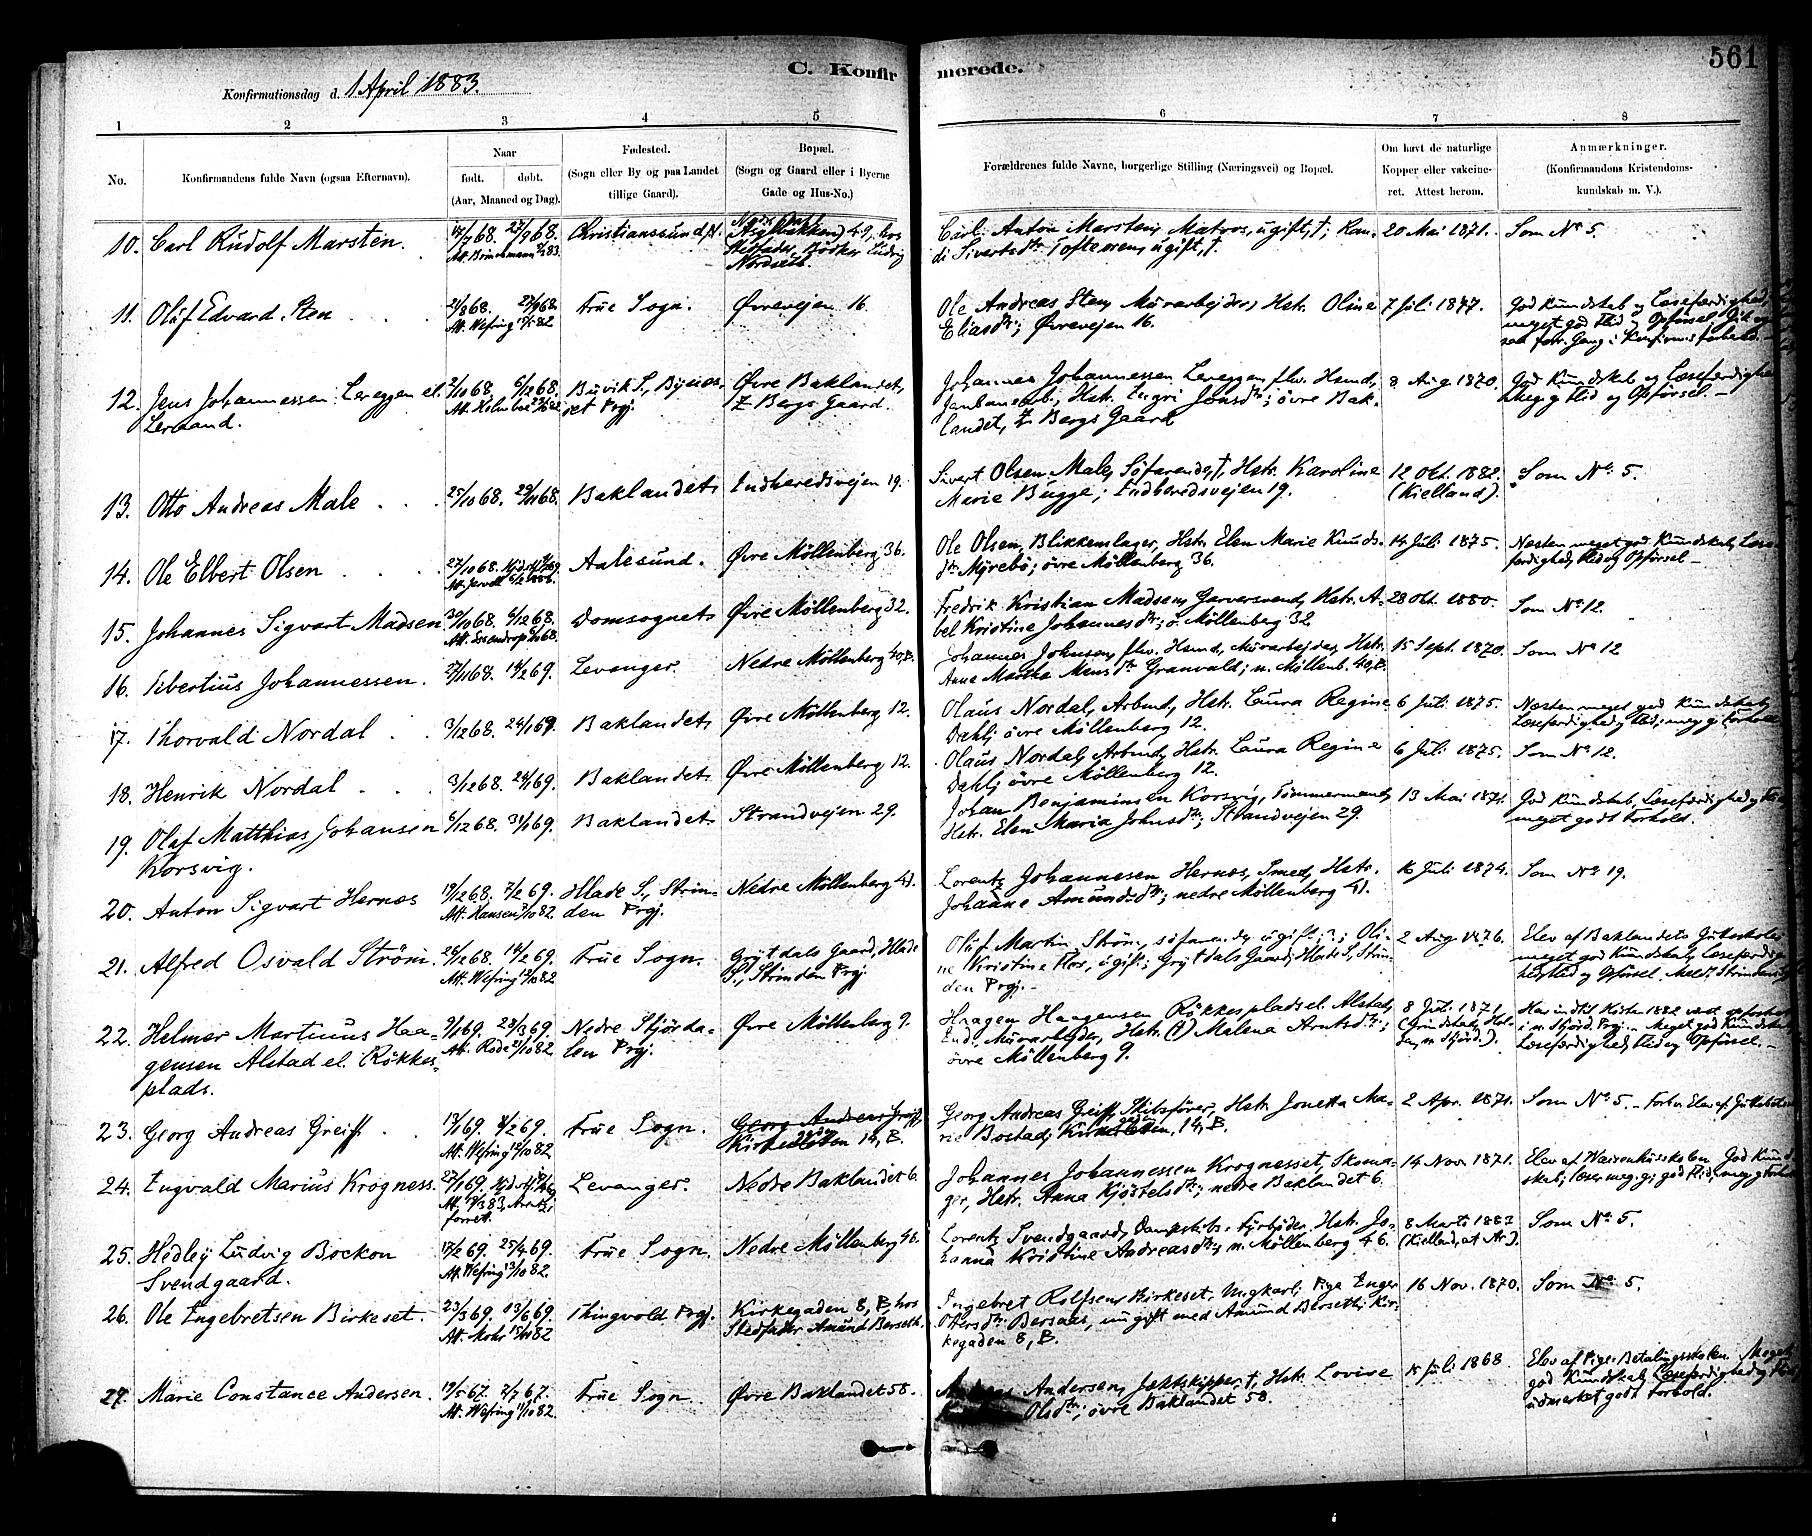 C. Konfirmerede.
561
Konfirmationsdag d. 1 April 1883.
1 2 3 4 5 6 7 8
No.
Konfirmandens fulde Navn (ogsaa Efternavn).
Naar
født. døbt.
(Aar, Maaned og Dag).
Fødested.
(Sogn eller By og paa Landet
tillige Gaard).
Bopæl.
(Sogn og Gaard eller i Byerne
Gade og Hus-No.)
Forældrenes fulde Navne, borgerlige Stilling (Næringsvei) og Bopæl.
Om havt de naturlige
Kopper eller vakcine-
ret. Attest herom.
Anmærkninger.
(Konfirmandens Kristendoms-
kundskab m. V.).
10. Carl Rudolf Marsten.
Christianssund
Stedfader Ludvig
Nordseth
Carl Anton Marsten, Matros, ugift, †;
di Sivertsdtr Toftemen, ugift, †.
20 Mai 1871.
Som No 5.
11. Oluf Edvard Sten
21/8 68. 27/9 68.
Att. Wefring 82
Frue Sogn.
Øvrevejen 16.
Ole Andreas Sten, Murarbejder, Hstr. Oline
Eliasdtr; Øvrevejen 16.
7 Juli 1877.
God Kundskab og Læsefærdighed,
meget god Flid og Opførsel.
12. Jens Johannessen Lereggen el.
Lersand.
2/10 68. 6/12 68.
Buvik S., Bynes-
set Prgj.
Øvre Baklandet,
Z Bergs Gaard.
Johannes Johannessen Lereggen, flv. Hemd,
Jernbanearb., Hstr. Ingri Jonsdtr; øvre Bak-
landet, Z Bergs Gaard
8 Aug. 1870.
God Kundskab og Læsefærdighed
Meg. g. Flid og Opførsel. -
13. Otto Andreas Male
25/10 68. 29/11 68.
Baklandet
Indherredsvejen 19.
Sivert Olsen Male, Söfarende, †, Hstr. Karoline
Marie Bugge; Indherredsvejen 19.
12 Okt. 1882.
(Kielland).
Som No 5.
14. Ole Elbert Olsen
27/10 68.
Aalesund.
Øvre Möllenberg 36.
Ole Olsen, Blikkenslager, Hstr. Elen Marie Knuds-
dtr Myrebö; övre Möllenberg 36.
14 Juli 1875.
Næsten meget god Kundskab, Læse-
færdighed, Flid og Opförsel -
15. Johannes Sigvart Madsen
30/10 68. 6/12 68.
Att. Essendrop
Domsognet
Øvre Möllenberg 32.
Fredrik Kristian Madsen, Garversvend, Hstr. A-
bel Kristine Johannesdtr; ö. Möllenberg 32
28 Okt. 1880.
Som No 12.
16. Tibertius Johannessen.
27/11 68. 14/2 69.
Levanger.
Nedre Möllenberg 40, B.
Johannes Johnsen, flv. Hemd, Murarbejder, Hstr.
Anna Martha Mons dtr Granvald; n. Möllenb. 40, B.
15 Sept. 1870.
Som No 12
17. Thorvald Nordal
3/12 68. 24/1 69.
Baklandet
Øvre Möllenberg 12.
Olaus Nordal, Arbmd, Hstr. Laura Regine
Dahl; övre Möllenberg 12.
6 Juli 1875.
Næsten meget god Kundskab,
Læsefærdighed, Flid; meg. g. Forhold
18. Henrik Nordal
3/12 68. 24/1 69.
Baklandet
Øvre Möllenberg 12.
Olaus Nordal, Arbmd, Hstr. Laura Regine
Dahl; övre Möllenberg 12.
6 Juli 1875.
Som No 12.
19. Olaf Matthias Johansen
Korsvig.
6/12 68. 31/1 69.
Baklandet
Strandvejen 29.
Johan Benjaminsen Korsvig, Tömmermand,
Hstr. Elen Maria Johnsdtr; Strandvejen 29.
13 Mai 1871.
God Kundskab, Læsefærdighed og Flid
meget godt Forhold.
20. Anton Sigvart Hernæs
19/12 68. 7/2 69.
Att. Hansen 82.
Hlade S., Strin-
den Prgj.
Nedre Möllenberg 41.
Lorentz Johannesen Hernæs, Smed, Hstr.
Johanne Amundsdtr; nedre Möllenberg 41.
16 Juli 1874.
Som No 19.
21. Alfred Osvald Ström.
28/12 68. 14/2 69.
Att. Wefring 82
Frue Sogn.
Grytdals Gaard, Hlade
S., Strinden Prgj
Oluf Martin Ström, söfarende, ugift; Oli-
ne Kristine Flor, ugift; Grytdals Gaard, Hlade S., Strin-
den Prgj. -
2 Aug. 1876.
Elev af Baklandets Gutteskole
meget god Kundskab, Læsefærdig-
hed, Flid og Opførsel.
22. Helmer Martinus Haa-
gensen Alstad el. Rökkes-
plads.
9/1 69. 29/3 69.
Att. Rode 82
Nedre Stjörda-
len Prgj.
Øvre Möllenberg 9.
Haagen Haagensen Rökkesplads el. Alstad,
Murarbejder, Hstr. Malena Arntsdtr;
övre Möllenberg 9.
8 Juli 1871.
Læsefærdighed, Flid og Opførsel. -
23. Georg Andreas Greiff
17/1 69. 7/2 69.
Att. Wefring 82
Frue Sogn.
Georg Andreas Greiff
14, B.
Georg Andreas Greiff, Skibsförer, Hstr. Jonetta Ma-
rie Bostad, 14, B.
2 Apr. 1871.
Som No 5. - Forhen Elev af
24. Ingvald Marius Krogness.
27/1 69.
Levanger.
Nedre Baklandet 6.
Johannes Johannessen Krognesset, Skoma-
ger, Hstr. Anna Kjöstelsdtr; nedre Baklandet 6.
14 Nov. 1871.
Elev af Waisenhusskolen. God Kund-
skab; læser meg. g; god Flid, meg. g. Forhold
25. Hedley Ludvig Bockon
Svendgaard.
17/2 69. 25/4 69.
Att. Wefring 13/10 82.
Frue Sogn.
Nedre Möllenberg 46.
Lorentz Svendgaard, Dampskibs-Fyrböder, Hstr. Jo-
hanna Kristine Andreasdtr; n. Möllenberg 46.
8 Marts 1883
(Kielland,
Som No 5.
26. Ole Ingebretsen Birkeset.
23/3 69. 13/6 69.
Att. Mohr 82
Thingvold Prgj.
Kirkegaden 8, B, hos
Stedfader Amund Berseth.
Ingebret Rolfsen Birkeset, Ungkarl; Pige Inger
Olersdtr Bersaas, nu gift med Amund Berseth; Kir-
kegaden 8, B.
16 Nov. 1870.
Som No 5.
27. Marie Constance Andersen.
19/5 67. 7/7 67.
Att. Wefring 82.
Frue Sogn.
Øvre Baklandet 58.
Andersen, Jægtskipper, †, Hstr. Lovise
Olsdtr; övre Baklandet 58.
Juli 1868.
Elev af Pige-Betalingsskolen. Meget
god Kundskab, Læsefærdighed og Flid,
udmærket godt Forhold.